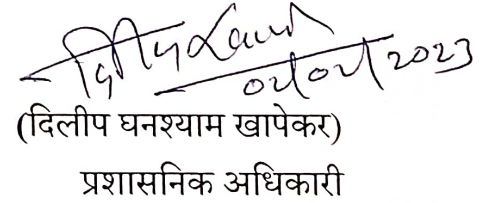 2023
(दिलीप घनश्याम खापेकर)
प्रशासनिक अधिकारी